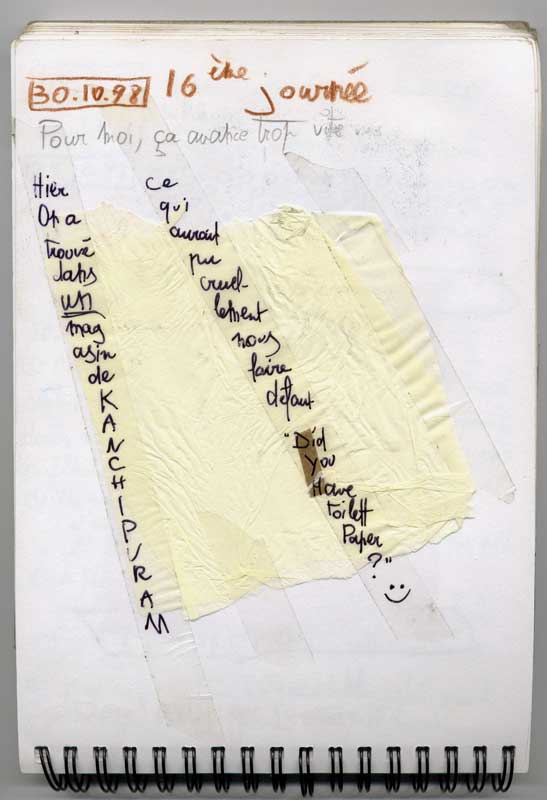 30.10.98 16ème journée
Pour moi, ça avance trop vite
Hier
On a
trouvé
dans
un
mag
asin
de
K
A
N
C
H
I
P
U
R
A
M
ce
qui
aurait
pu
cruel-
lement
nous
faire
défaut
"Did
you
Have
toilett
Paper
?"